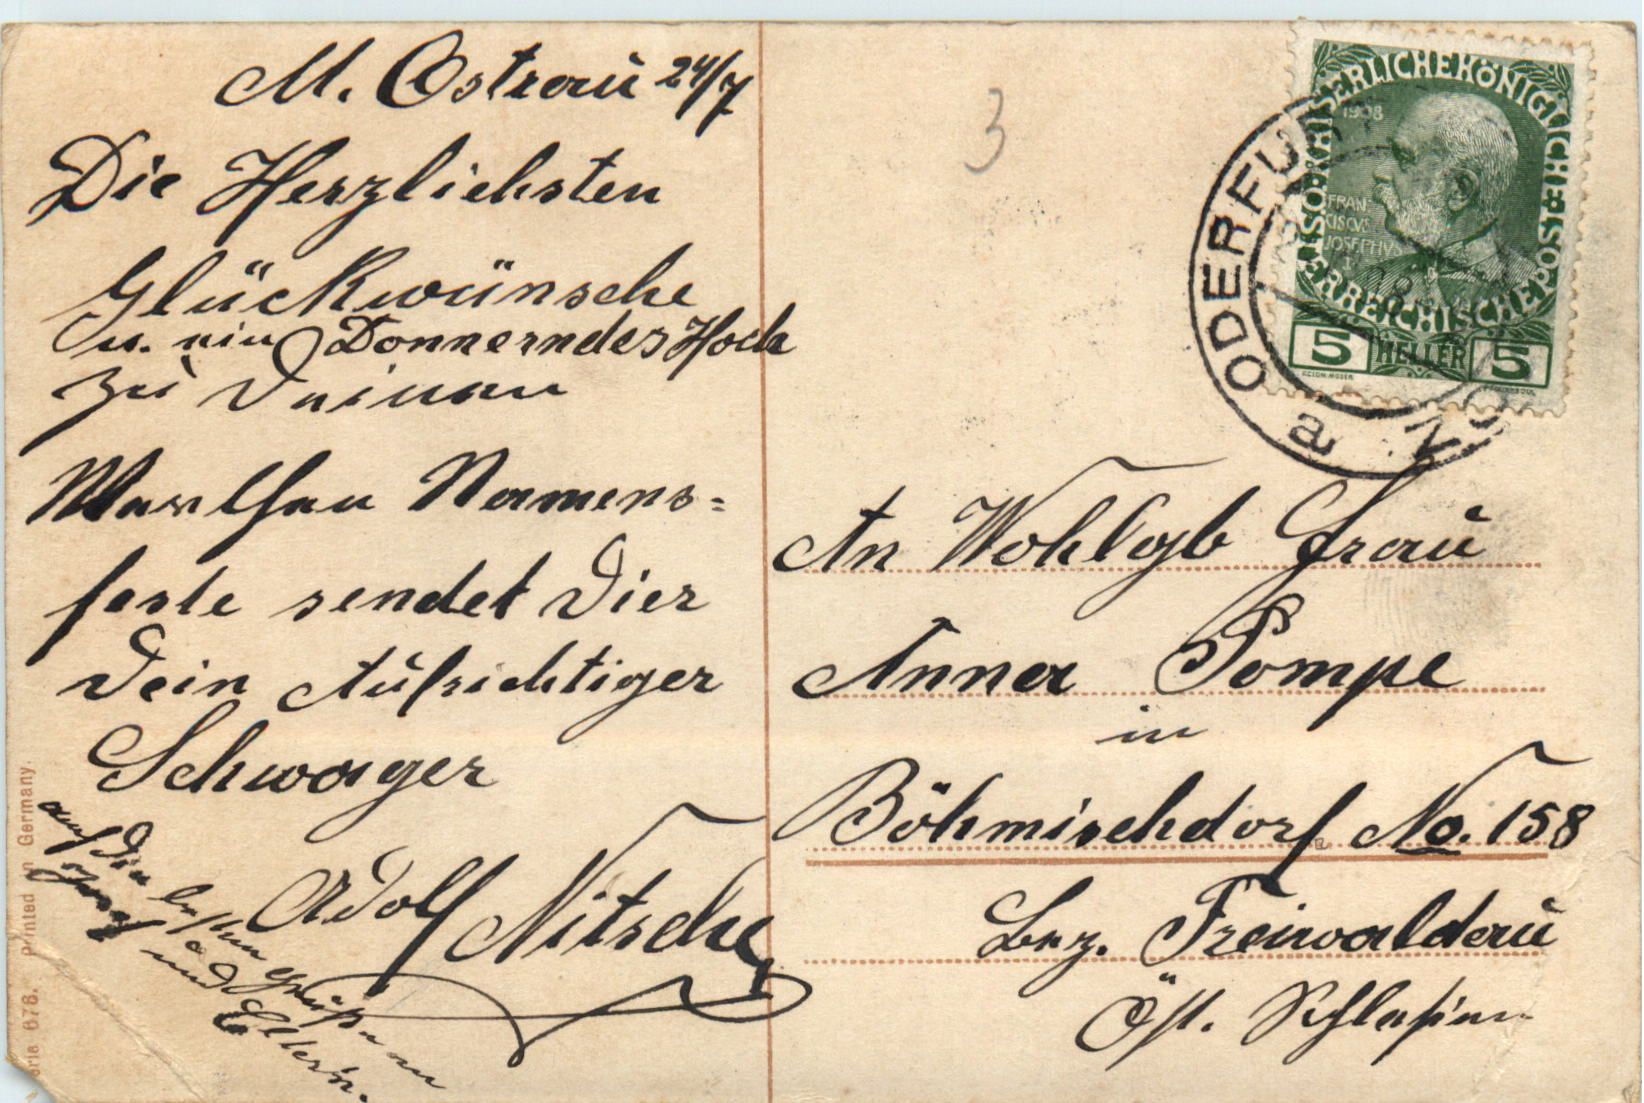 M. Ostrau 24/7
Die Herzlichsten
Glückwünsche
u. ein Donnerndes Hoch
zu Deinen
Werthen Namens=
feste sendet Dier
Dein Aufrichtiger
Schwager
Adolf Nitsche
auf Dein
besten Grüße an
und Eltern.
Printed in Germany.
erie 678.
3
ÖSTERREICHISCHE POST
KAISERLICHE KÖNIGLICHE
1908
FRAN-
CISCVS
IOSEPHVS
5 HELLER 5
ODERFU
a
An Wohlgb Frau
Anna Pompe
in
Böhmischdorf No. 158
Bez. Freiwaldau
Öst. Schlesien